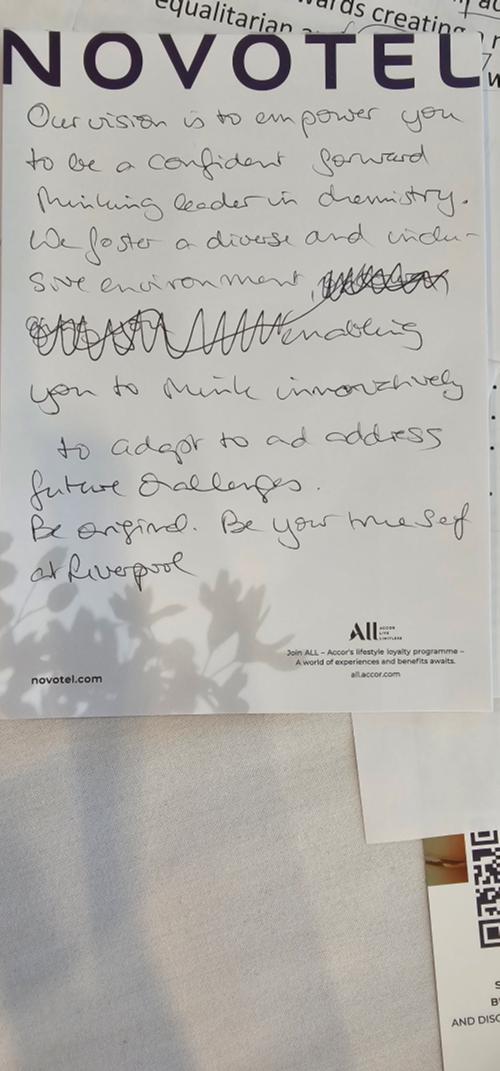 equalitarian
wards creating
NOVOTEL
Our vision is to empower you
to be a confident forward
thinking leader in chemistry.
We foster a diverse and inclu-
sive environment,
enabling
you to think innovatively
to adapt to ad address
future challenges.
Be original. Be your true self
at Liverpool
All ACCOR
LIVE
LIMITLESS
Join ALL – Accor's lifestyle loyalty programme –
A world of experiences and benefits awaits.
novotel.com
all.accor.com
AND DISC